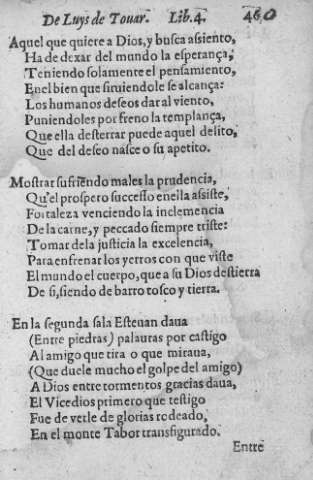 De Luys de Touar. Lib.4. 460
Aquel que quiere a Dios, y busca assiento,
Ha de dexar del mundo la esperança,
Teniendo solamente el pensamiento,
Enel bien que siruiendole se alcança:
Los humanos deseos dar al viento,
Puniendoles por freno la templança,
Que ella desterrar puede aquel delito,
Que del deseo nasce o su apetito.
Mostrar sufriendo males la prudencia,
Qu'el prospero successo enella assiste,
Fortaleza venciendo la inclemencia
De la carne, y peccado siempre triste:
Tomar dela justicia la excelencia,
Para enfrenar los yerros con que viste
El mundo el cuerpo, que a su Dios destierra
De si, siendo de barro tosco y tierra.
En la segunda sala Esteuan daua
(Entre piedras) palauras por castigo
Al amigo que tira o que miraua,
(Que duele mucho el golpe del amigo)
A Dios entre tormentos gracias daua,
El Vicedios primero que testigo
Fue de verle de glorias rodeado,
En el monte Tabor transfigurado.
Entre